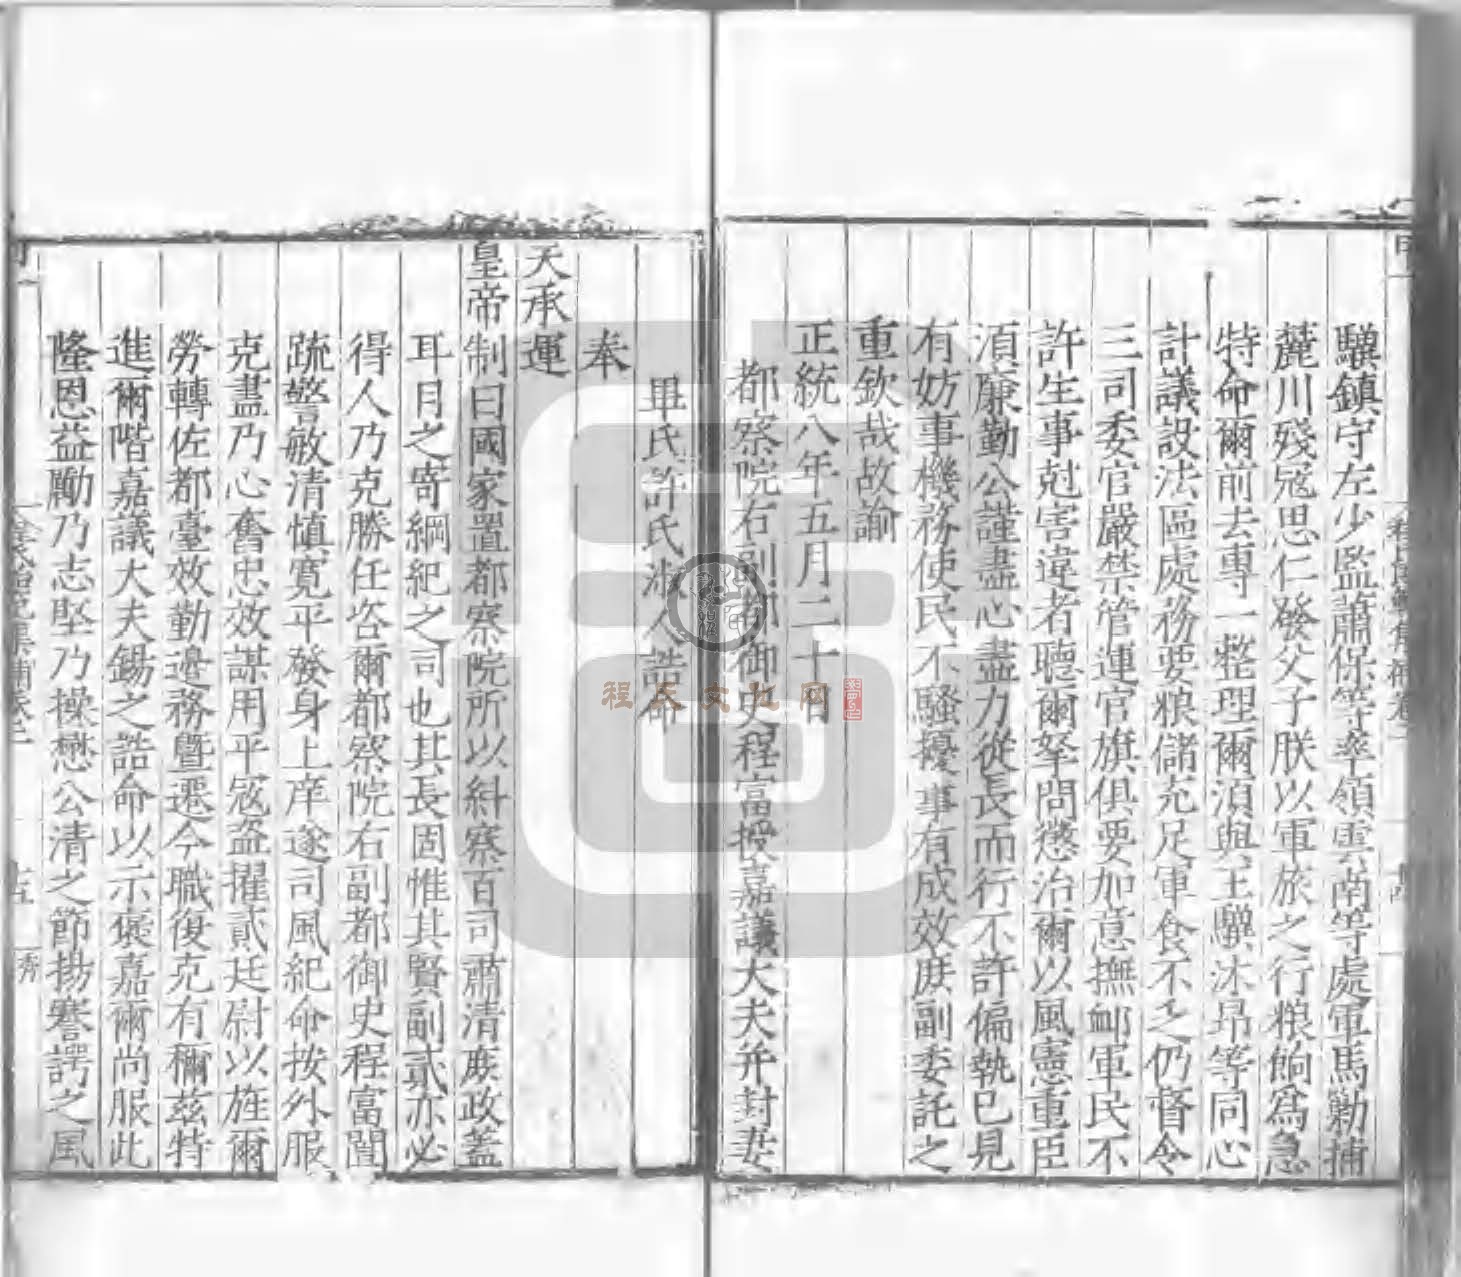 驥鎮守左少監蕭保等率領雲南等處軍馬勦捕
麓川殘寇思仁發父子朕以軍旅之行粮餉爲急
特命爾前去專一整理爾須與王驥沐昂等同心
計議設法區處務要粮儲充足軍食不乏仍督令
三司委官嚴禁管運官旗俱要加意撫䘏軍民不
許生事尅害違者聽爾拏問懲治爾以風憲重臣
湏廉勤公謹盡心盡力從長而行不許偏執己見
有妨事機務使民不騷擾事有成效庶副委託之
重欽哉故諭
正統八年五月二十日
都察院右副都御史程富授嘉議大夫并封妻
畢氏許氏淑人誥命
奉
天承運
皇帝制曰國家置都察院所以糾察百司肅清庶政蓋
耳目之寄綱紀之司也其長固惟其賢副貳亦必
得人乃克勝任咨爾都察院右副都御史程富閫
疏警敏清慎寬平發身上庠遂司風紀命按外服
克盡乃心奮忠效謀用平寇盜擢貳廷尉以旌爾
勞轉佐都臺效勤邊務曁遷今職復克有稱茲特
進爾階嘉議大夫錫之誥命以示褒嘉爾尚服此
隆恩益勵乃志堅乃操懋公清之節揚謇諤之風
程氏文化网